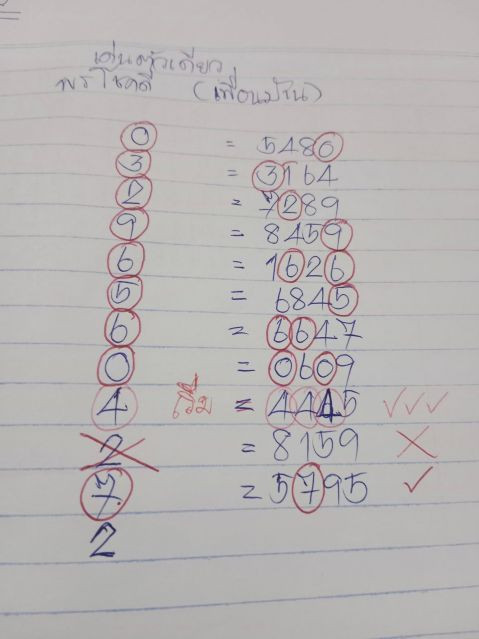 เด่นตัวเดียว
พรโชคดี (เพื่อนบ้าน)
0 = 5480
3 = 3164
2 = 7289
9 = 8459
6 = 1626
5 = 6845
6 = 6647
0 = 0609
4 = 4445 ✓✓✓
2 = 8159 ✗
7 = 5795 ✓
2